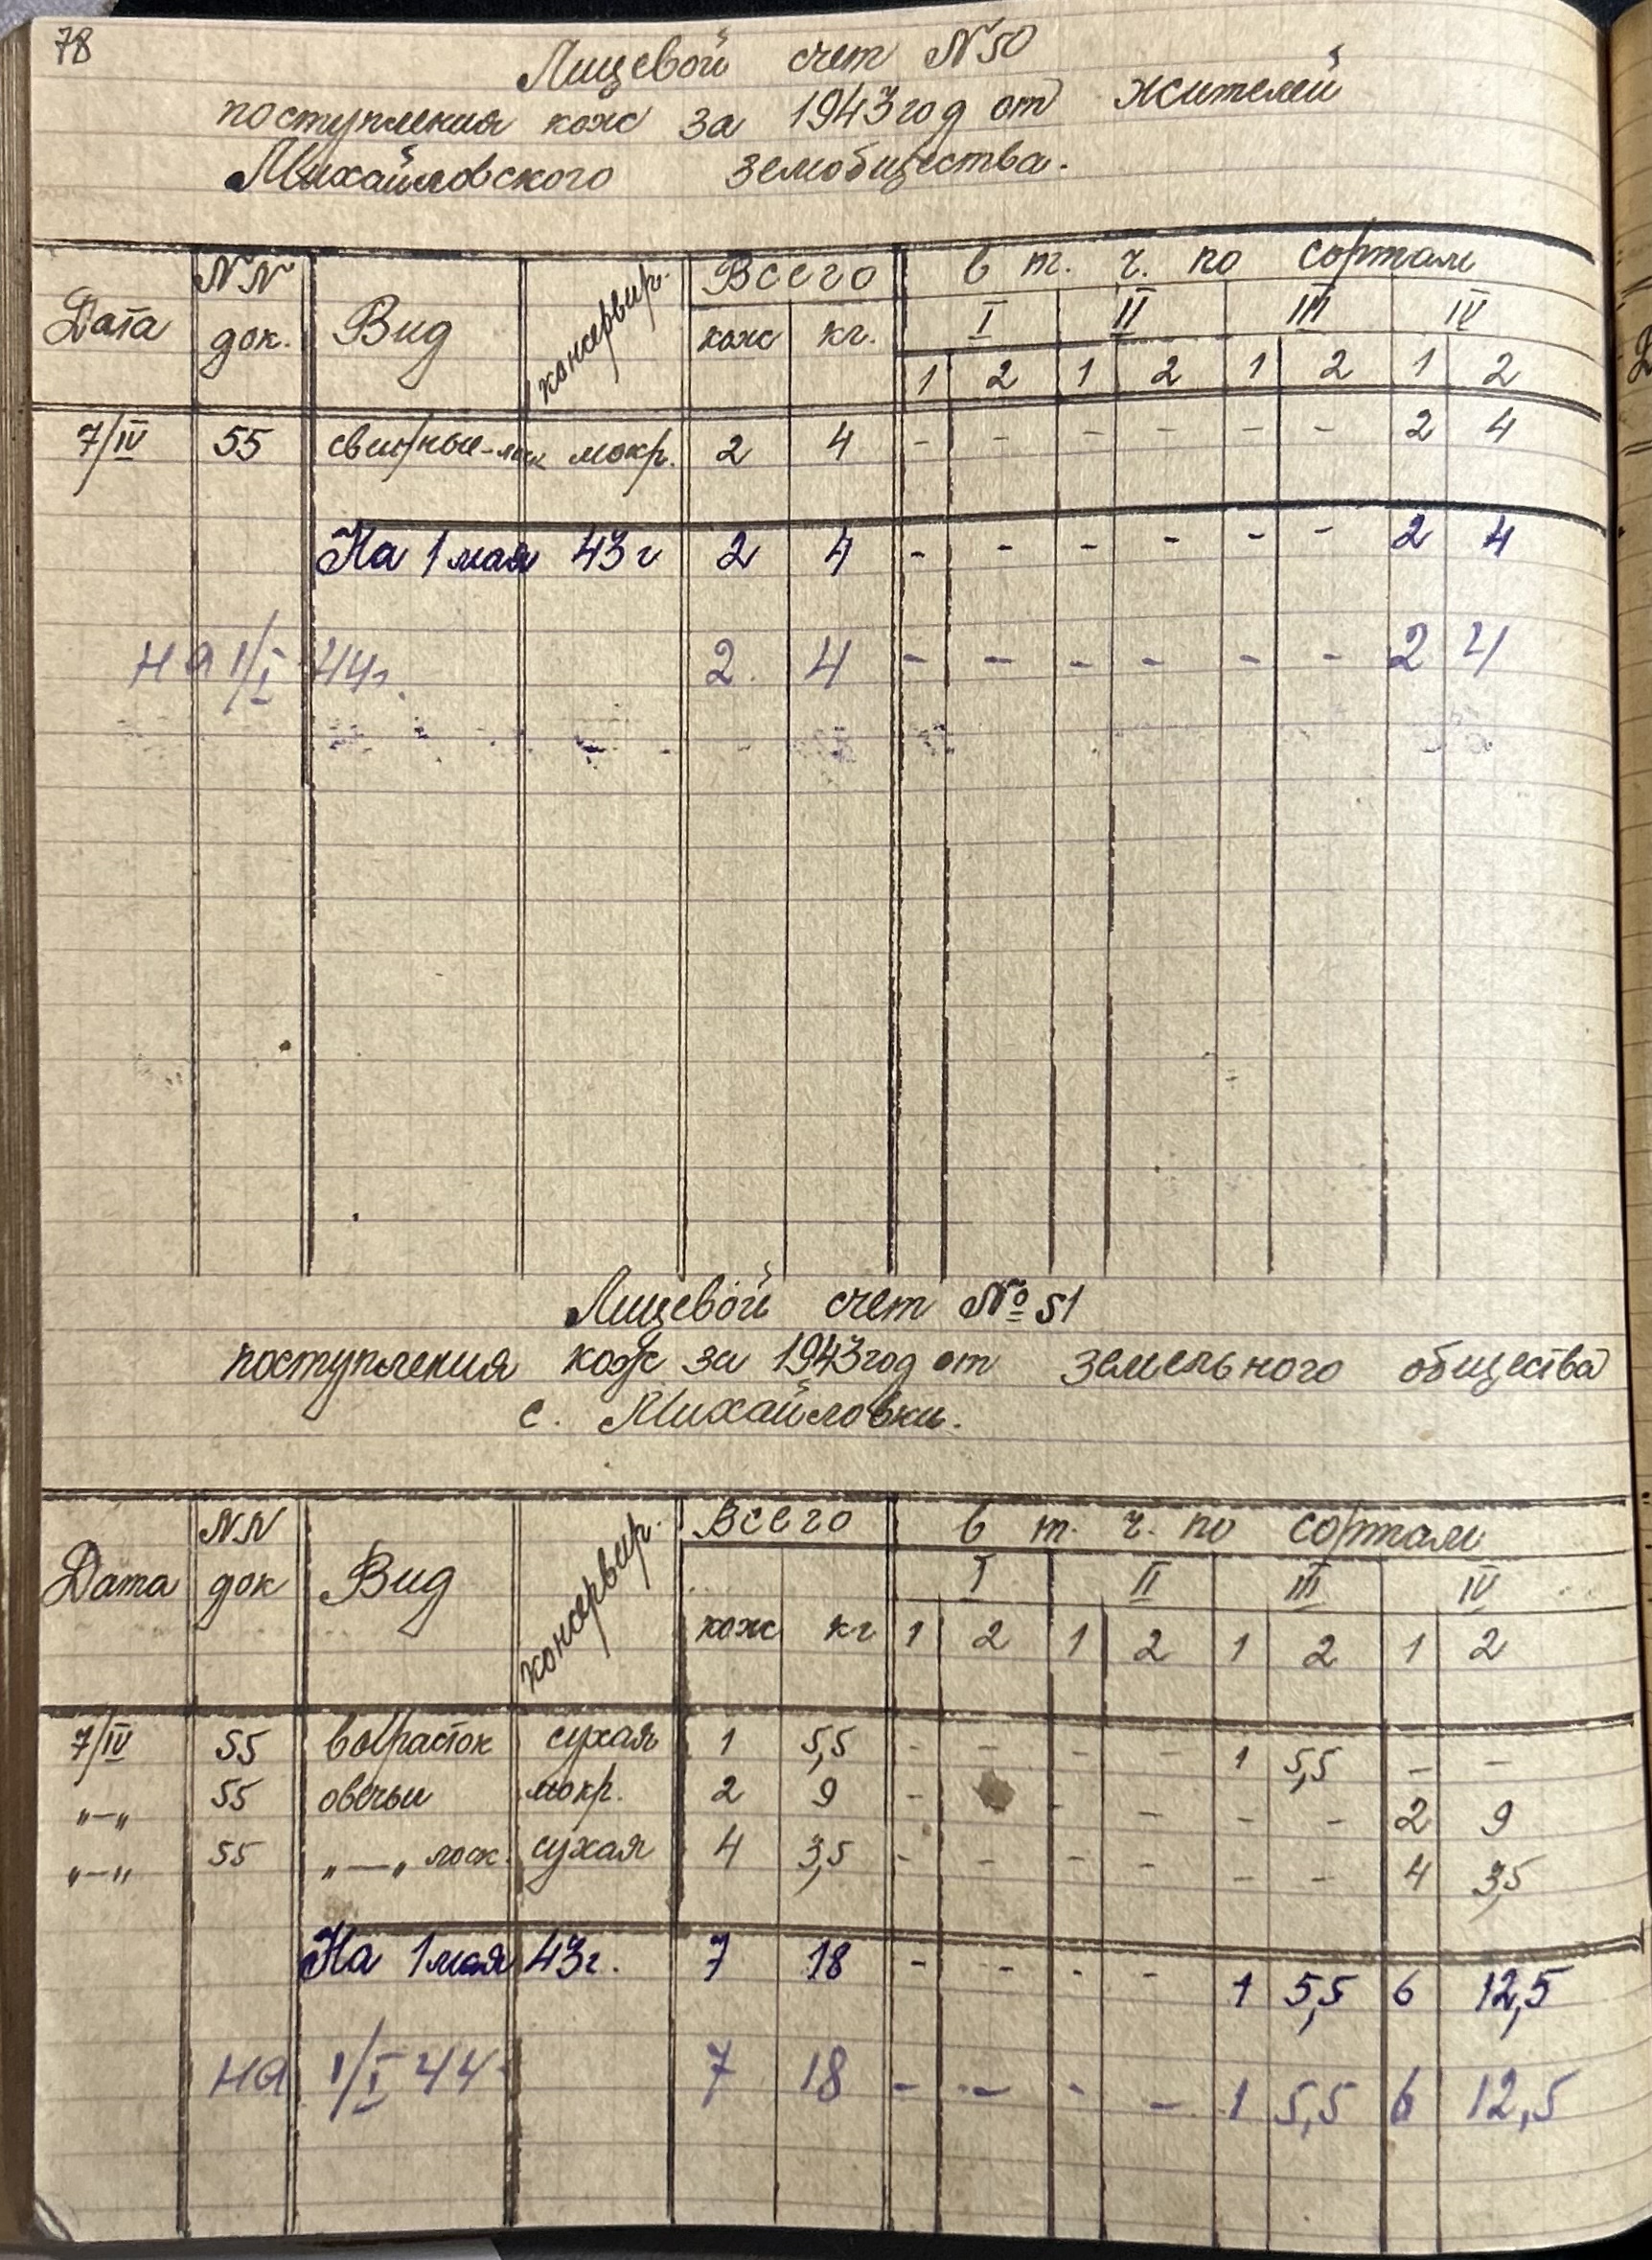 78
Лицевой счет N 50
поступления кож за 1943 год от жителей
Михайловского земобщества.
Дата NN док. Вид консервир. Всего в т. ч. по сортам
кож кг. I II III IV
1 2 1 2 1 2 1 2
7/IV 55 свиные- мокр. 2 4 - - - - - - 2 4
На 1 мая 43 г 2 4 - - - - - - 2 4
на 1/I 44г. 2. 4 - - - - - - 2 4
Лицевой счет № 51
поступления кож за 1943 год от земельного общества
с. Михайловки.
Дата NN док Вид консервир. Всего в т. ч. по сортам
I II III IV
кож кг 1 2 1 2 1 2 1 2
7/IV 55 выросток сухая 1 5,5 - - - - 1 5,5 - -
„—„ 55 овечьи мокр. 2 9 - - - - - 2 9
„—„ 55 „—„ лоск. сухая 4 3,5 - - - - - - 4 3,5
На 1 мая 43г. 7 18 - - - - 1 5,5 6 12,5
на 1/I 44 7 18 - - - - 1 5,5 6 12,5